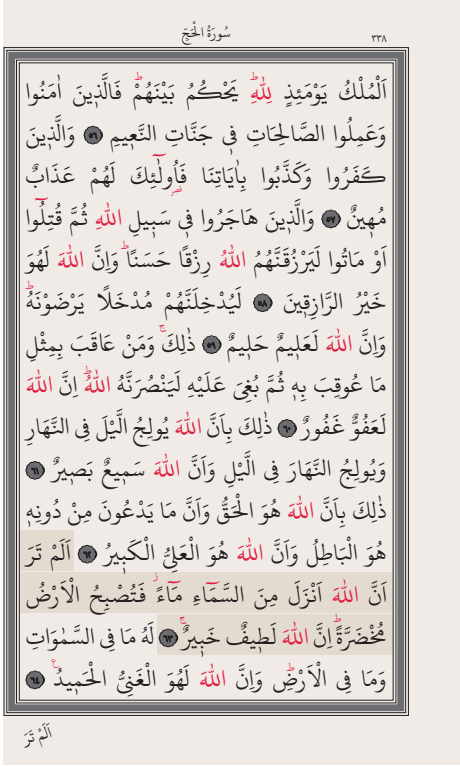 سُورَةُ الْحَجِّ
٣٣٨
اَلْمُلْكُ يَوْمَئِذٍ لِلّٰهِۜ يَحْكُمُ بَيْنَهُمْۜ فَالَّذٖينَ اٰمَنُوا
وَعَمِلُوا الصَّالِحَاتِ فٖي جَنَّاتِ النَّعٖيمِ ﴿٥٦﴾ وَالَّذٖينَ
كَفَرُوا وَكَذَّبُوا بِاٰيَاتِنَا فَاُو۬لٰٓئِكَ لَهُمْ عَذَابٌ
مُهٖينٌ ﴿٥٧﴾ وَالَّذٖينَ هَاجَرُوا فٖي سَبٖيلِ اللّٰهِ ثُمَّ قُتِلُٓوا
اَوْ مَاتُوا لَيَرْزُقَنَّهُمُ اللّٰهُ رِزْقًا حَسَنًاۜ وَاِنَّ اللّٰهَ لَهُوَ
خَيْرُ الرَّازِقٖينَ ﴿٥٨﴾ لَيُدْخِلَنَّهُمْ مُدْخَلًا يَرْضَوْنَهُۜ
وَاِنَّ اللّٰهَ لَعَلٖيمٌ حَلٖيمٌ ﴿٥٩﴾ ذٰلِكَۚ وَمَنْ عَاقَبَ بِمِثْلِ
مَا عُوقِبَ بِهٖ ثُمَّ بُغِيَ عَلَيْهِ لَيَنْصُرَنَّهُ اللّٰهُۜ اِنَّ اللّٰهَ
لَعَفُوٌّ غَفُورٌ ﴿٦٠﴾ ذٰلِكَ بِاَنَّ اللّٰهَ يُولِجُ الَّيْلَ فِي النَّهَارِ
وَيُولِجُ النَّهَارَ فِي الَّيْلِ وَاَنَّ اللّٰهَ سَمٖيعٌ بَصٖيرٌ ﴿٦١﴾
ذٰلِكَ بِاَنَّ اللّٰهَ هُوَ الْحَقُّ وَاَنَّ مَا يَدْعُونَ مِنْ دُونِهٖ
هُوَ الْبَاطِلُ وَاَنَّ اللّٰهَ هُوَ الْعَلِيُّ الْكَبٖيرُ ﴿٦٢﴾ اَلَمْ تَرَ
اَنَّ اللّٰهَ اَنْزَلَ مِنَ السَّمَٓاءِ مَٓاءًۘ فَتُصْبِحُ الْاَرْضُ
مُخْضَرَّةًۜ اِنَّ اللّٰهَ لَطٖيفٌ خَبٖيرٌۚ ﴿٦٣﴾ لَهُ مَا فِي السَّمٰوَاتِ
وَمَا فِي الْاَرْضِۜ وَاِنَّ اللّٰهَ لَهُوَ الْغَنِيُّ الْحَمٖيدُ۟ ﴿٦٤﴾
اَلَمْ تَرَ